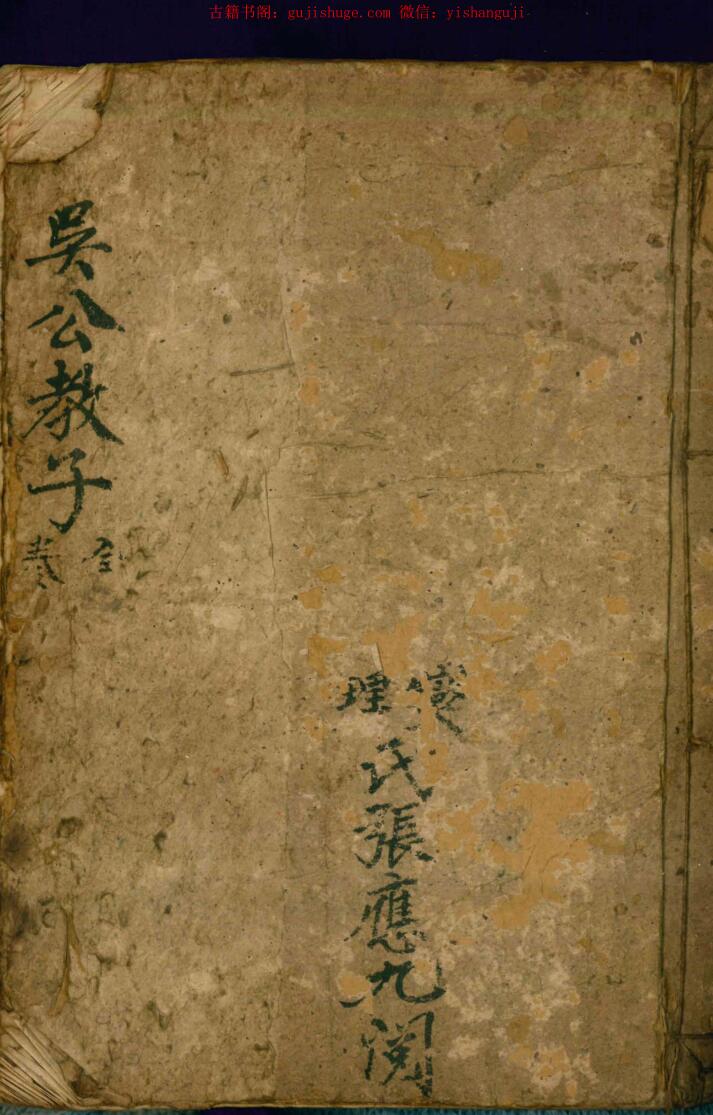 古籍书阁：gujishuge.com 微信：yishanguji
吳公教子
全卷
理氏張應九閱